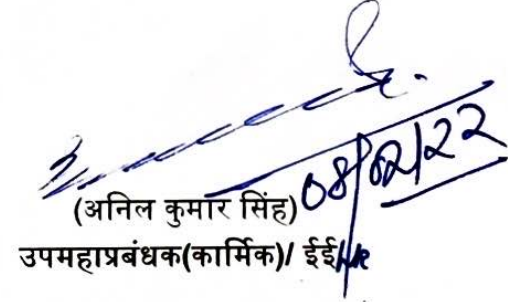 08/02/22
(अनिल कुमार सिंह)
उपमहाप्रबंधक(कार्मिक)/ ईई